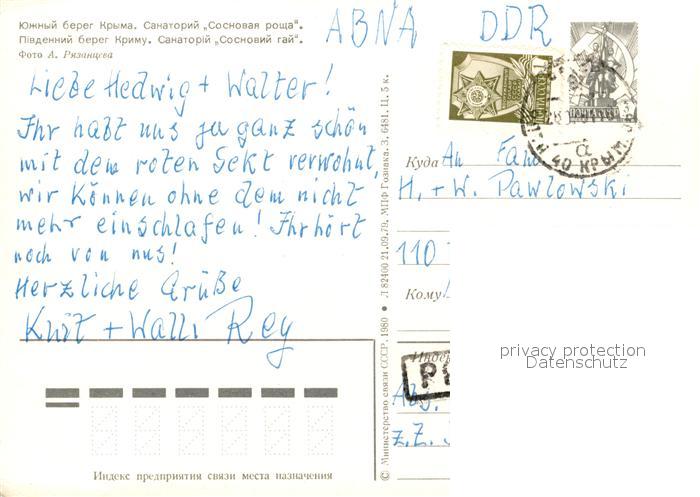 Южный берег Крыма. Санаторий „Сосновая роща“.
Південний берег Криму. Санаторій „Сосновий гай“.
Фото А. Рязанцева
АВИА DDR
Liebe Hedwig + Walter!
Ihr habt uns ja ganz schön
mit dem roten Sekt verwöhnt,
wir können ohne dem nicht
mehr einschlafen! Ihr hört
noch von uns!
Herzliche Grüße
Kurt + Walli Rey
Индекс предприятия связи места назначения
© Министерство связи СССР. 1980 ● Л 82400 21.09.79. МПФ Гознака. З. 6481. Ц. 5 к.
ПОЧТА СССР
КРЫМ
Куда An Fam
H. + W. Pawlowski
110
Кому
Индекс
Abs.
z.Z.
privacy protection
Datenschutz